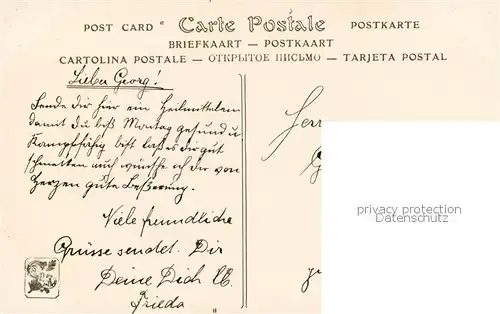 POST CARD Carte Postale POSTKARTE
BRIEFKAART — POSTKAART
CARTOLINA POSTALE — ОТКРЫТОЕ ПИСЬМО — TARJETA POSTAL
Lieber Georg!
Sende dir hier ein Heilmittelen
damit du biß Montag gesund u
Kampffähig bist laß es dir gut
schmecken auch wünsche ich dir von
Herzen gute Beßerung.
Viele freundliche
Grüsse sendet Dir
Deine Dich lb.
Frieda
Herr
privacy protection
Datenschutz